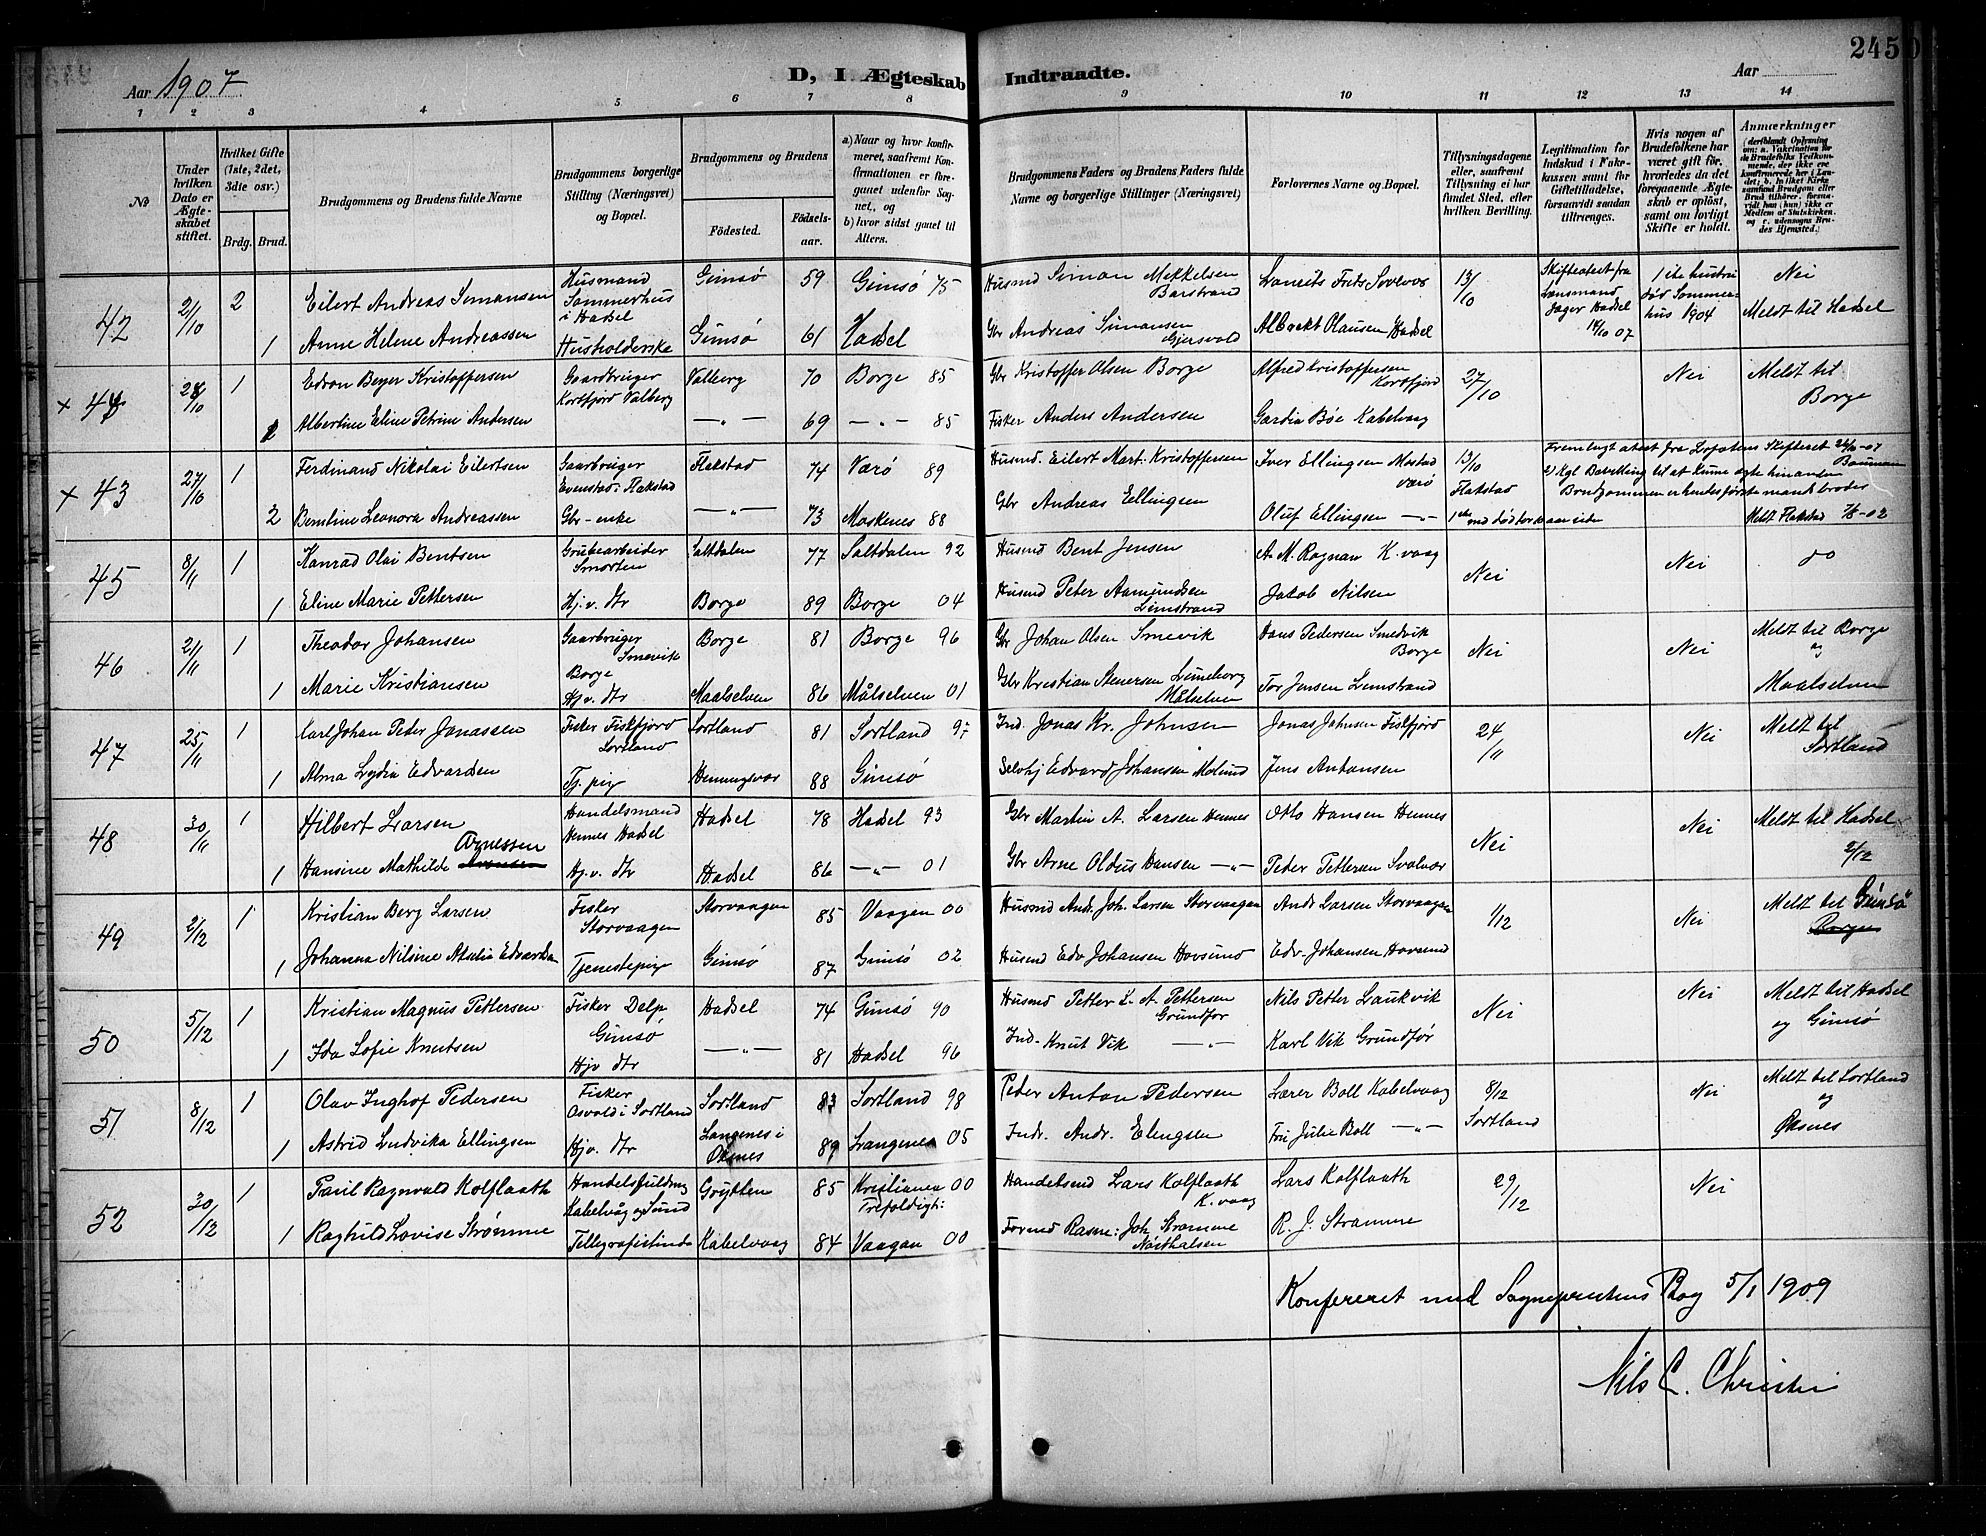 245
Aar 1907
D, I. Ægteskab Indtraadte.
Aar
1 2 3 4 5 6 7 8 9 10 11 12 13 14
№
Under hvilken Dato er Ægteskabet stiftet.
Hvilket Gifte (1ste, 2det, 3die osv.)
Brdg. Brud.
Brudgommens og Brudens fulde Navne
Brudgommens borgerlige Stilling (Næringsvei) og Bopæl.
Brudgommens og Brudens
Födested. Födselsaar.
a) Naar og hvor konfirmeret, saafremt Konfirmationen er foregaaet udenfor Sognet, og
b) hvor sidst gaaet til Alters.
Brudgommens Faders og Brudens Faders fulde Navne og borgerlige Stillinger (Næringsvei)
Forlovernes Navne og Bopæl.
Tillysningsdagene eller, saafremt Tillysning ei har fundet Sted, efter hvilken Bevilling.
Legitimation for Indskud i Fakkassen samt for Giftetilladelse, forsaavidt saadan tiltrænges.
Hvis nogen af Brudefolkene har været gift för, hvorledes da det foregaaende Ægteskab er oplöst, samt om lovligt Skifte er holdt.
Anmærkninger
42 2/10 2 Eilert Andreas Simonsen Husmand Sommerhus i Hadsel Gimsö 59 Gimsö 75 Husmd Simon Mikkelsen Barstrand 13/10 Skifteatest fra Lænsmand Jager Hadsel 1ste hustru död Sommerhus 1904 Nei
1 Anne Helene Andreassen Husholderske Gimsö 61 Hadsel Gbr Andreas Simonsen Gjersvold Albrekt Olausen Hadsel Meldt til Hadsel
x 44 28/10 1 Edvon Beyer Kristoffersen Gaardbruger Kortfjord Valberg Valberg 70 Borge 85 Gbr Kristoffer Olsen Borge Alfred Kristoffersen Kortfjord 27/10 Nei Meldt til Borge
Albertine Eline Petrine Andersen —„— 69 —„— 85 Fisker Anders Andersen Gardin Böe Kabelvaag
x 43 27/10 1 Ferdinand Nikolai Eilertsen Gaarbruger Evenstad i Flakstad Flakstad 74 Værö 89 Husmd. Eilert Mart. Kristoffersen Iver Ellingsen Mostad Værö 13/10 Flakstad Fremlagt atest fra Lofotens Skifteret
2) Kgl Bevilling til at kunne ægte hinanden
Brudgommen er hendes förste mands broder
2 Berntine Leonora Andreassen Gbr-enke —„— 73 Moskenes 88 Gbr Andreas Ellingsen Oluf Ellingsen —„— Meldt Flakstad
45 8/11 1 Konrad Olai Bentsen Grubearbeider Smorten Saltdalen 77 Saltdalen 92 Husmd Bent Jensen A. M. Rognan K.vaag Nei Nei do
1 Eline Marie Pettersen Hj.v. dtr Borge 89 Borge 04 Husmd Peter Aamundsen Limstrand Jakob Nilsen
46 2/11 1 Theodor Johansen Gaarbruger Smevik Borge Borge 81 Borge 96 Gbr Johan Olsen Smevik Hans Pedersen Smedvik Borge Nei Nei Meldt til Borge og
1 Marie Kristiansen Hj.v. dtr Maalselven 86 Målselven 01 Gbr Kristian Stenersen Luneborg Målselven Tor Jensen Limstrand Maalselven
47 25/11 1 Karl Johan Peder Jonassen Fisker Fiskfjord Sortland Sortland 81 Sortland 97 Ind. Jonas Kr. Johnsen Jonas Johnsen Fiskfjord 24/11 Nei Meldt til Sortland
1 Alma Lydia Edvardsen Tj. pig Henningsvær 88 Gimsö Selvhj Edvard Johansen Molund Jens Antonsen
48 30/11 1 Hilbert Larsen Handelsmand Hennes Hadsel Hadsel 78 Hadsel 93 Gbr Martin A. Larsen Hennes Otto Hansen Hennes Nei Nei Meldt til Hadsel 2/12
1 Hansine Mathilde Arnessen Hj.v. dtr Hadsel 86 —„— 01 Gbr Arne Oldus Hansen —„— Peder Pettersen Svolvær
49 2/12 1 Kristian Berg Larsen Fisker Storvaagen Storvaagen 85 Vaagan 00 Husmd Andr. Joh. Larsen Storvaagan Andr Larsen Storvaagen 1/12 Nei Meldt til Gimsö
1 Johanna Nilsine Atelia Edvardsen Tjenestepig Gimsö 87 Gimsö 02 Husmd Edv Johansen Hovsund Edv. Johansen Hovsund
50 5/12 1 Kristian Magnus Pettersen Fisker Delp Gimsö Hadsel 74 Gimsö 90 Husmd Petter L. A. Pettersen Grundfor Nils Petter Laukvik Nei Nei Meldt til Hadsel og Gimsö
1 Ida Sofie Knutsen Hjv dtr —„— 81 Hadsel 96 Ind. Knut Vik —„— Karl Vik Grundför
51 8/12 1 Olav Inghof Pedersen Fisker Osvold i Sortland Sortland 83 Sortland 98 Peder Anton Pedersen Lærer Boll Kabelvaag 8/12 Sortland Nei Meldt til Sortland og
1 Astrid Ludvika Ellingsen Hjv. dtr Langenes i Öksnes 89 Langenes 05 Indr. Andr. Elingsen Fru Julie Boll —„— Øksnes
52 30/12 1 Paul Ragnvald Kolflaath Handelsfuldmg Kabelvåg og Sund Grytten 85 Kristiania 00 Trefoldigh: Handelsmd Lars Kolflaath K.vaag Lars Kolflaath 29/12 Nei
1 Raghild Lovise Strömme Tellegrafistinde Kabelvaag 84 Vaagan 00 Formd Rasm: Joh. Strømme R. J. Strømme
Konfereret med Sogneprestens Bog 5/1 1909
Nils C. Christie